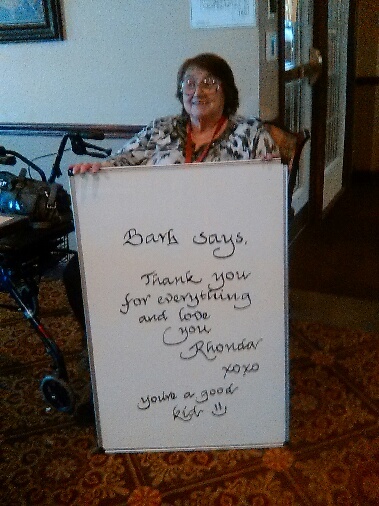 Barb says,
Thank you
for everything
and love
you
Rhonda
xoxo
you're a good
kid